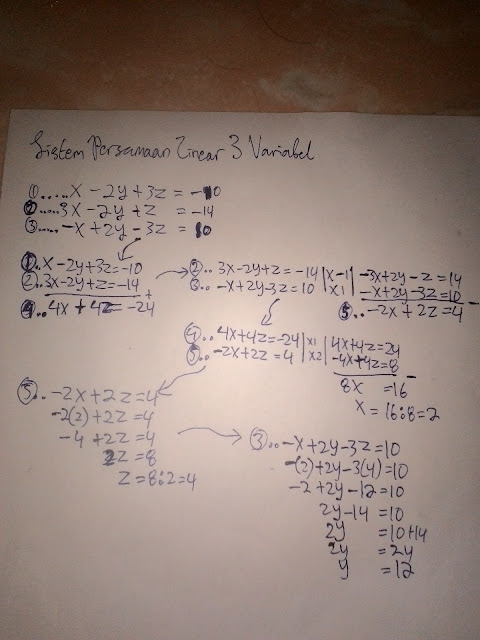 Sistem Persamaan Linear 3 Variabel
①.....X - 2y + 3z = -10
②....3X - 2y + z = -14
③....-X + 2y - 3z = 10
①..X - 2y + 3z = -10
②..3X - 2y + z = -14
+
④..4X + 4z = -24
②.. 3X - 2y + z = -14 | x -1 | -3x + 2y - z = 14
③.. -X + 2y - 3z = 10 | x 1 | -X + 2y - 3z = 10
-
⑤.. -2X + 2z = 4
④.. 4X + 4z = -24 | x1 | 4X + 4z = 24
⑤.. -2X + 2z = 4 | x2 | -4X + 4z = 8
-
8X = 16
X = 16:8 = 2
⑤.. -2X + 2z = 4
-2(2) + 2z = 4
-4 + 2z = 4
2z = 8
z = 8:2 = 4
③.. -X + 2y - 3z = 10
-(2) + 2y - 3(4) = 10
-2 + 2y - 12 = 10
2y - 14 = 10
2y = 10 + 14
2y = 24
y = 12